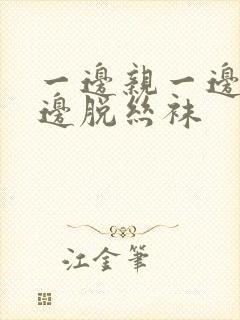 一邊親一邊
邊脫絲袜
江金筆